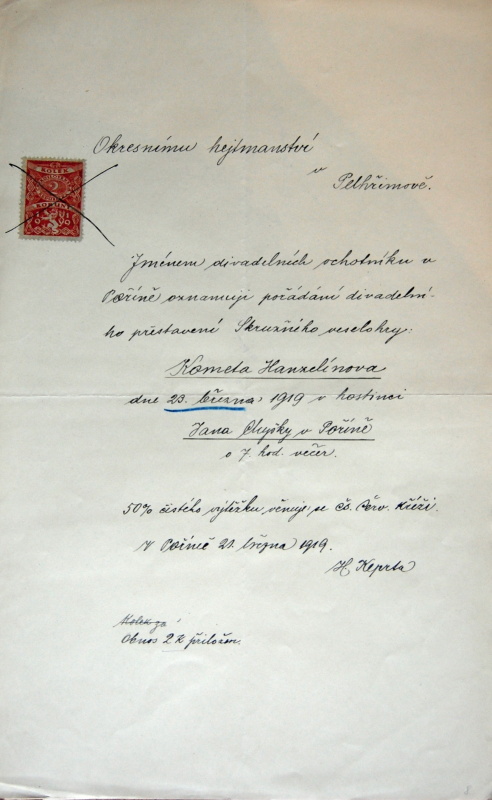 Okresnímu hejtmanství
v
Pelhřimově.
KOLEK
2
KORUNY
Jménem divadelních ochotníku v
Pořině oznamuji pořádání divadelní-
ho přestavení Skružného veselohry:
Kometa Hanzelínova
dne 23. března 1919 v hostinci
Jana Chyšky v Pořině
o 7. hod. večer.
50% čistého výtěžku věnuje se čs. červ. kříži.
V Pořině 21. března 1919.
H Keprta
Kolek za
Obnos 2 K přiložen.